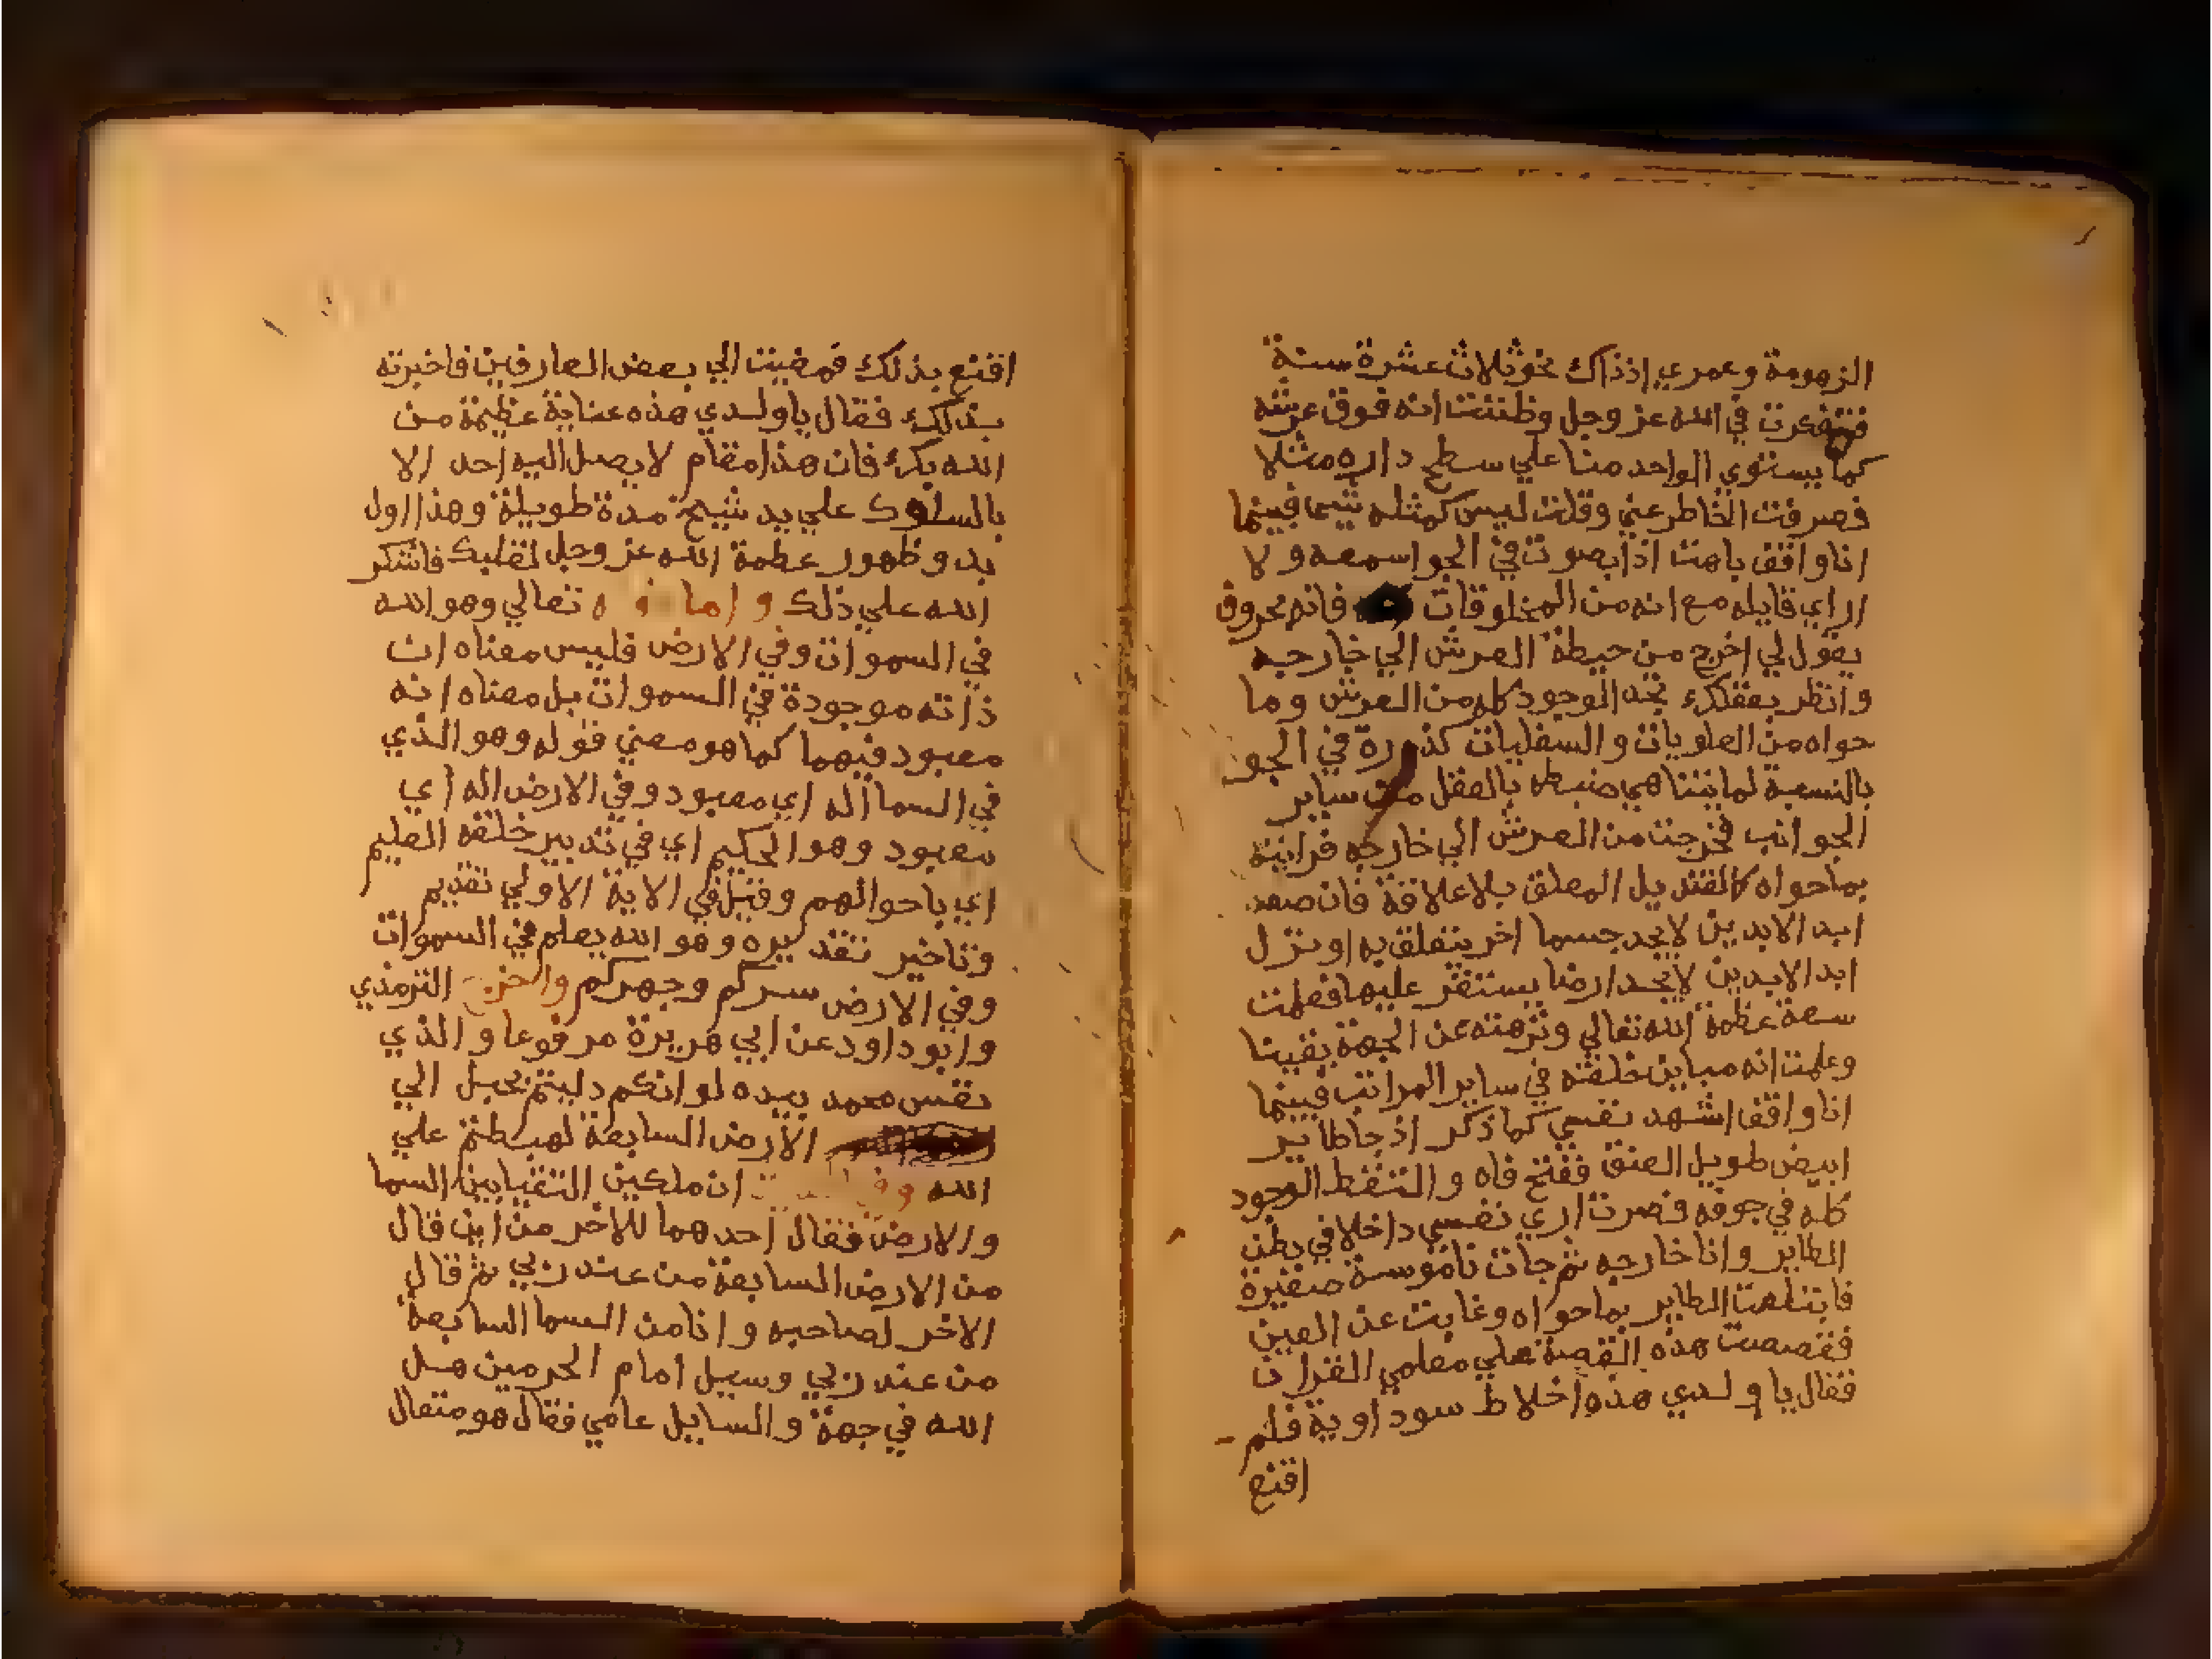 الزهومة وعمري اذذاك نحوثلاث عشرة سنة
فتفكرت في الله عز وجل وظننت انه فوق عرشه
كما يستوي الواحد منا علي سطح داره مثلا
فصرفت الخاطر عني وقلت ليس كمثله شي فبينما
انا واقف باهت اذا بصوت في الجو اسمعه ولا
اراي قايله مع انه من المخلوقات فانه محروق
يقول لي اخرج من حيطة العرش الي خارجه
وانظر بعقلك تجد الوجود كله من العرش وما
حواه من العلويات والسفليات كذرة في الجو
بالنسبة لما يتناهي ضبطه بالعقل من ساير
الجوانب فخرجت من العرش الي خارجه فرايته
بما حواه كالقنديل المعلق بلا علاقة فان صعد
ابد الابدين لا يجد جسما اخر يتعلق به او نزل
ابد الابدين لا يجد ارضا يستقر عليها فعلمت
سعة عظمة الله تعالي وتزهته عن الجهة يقينا
وعلمت انه مباين خلقه في ساير المراتب فبينما
انا واقف اشهد نفسي كما ذكر اذ جا طاير
ابيض طويل العنق ففتح فاه والتقط الوجود
كله في جوفه فصرت اري نفسي داخلا في بطن
الطاير وانا خارجه ثم جات ناموسة صغيرة
فابتلعت الطاير بما حواه وغابت عن العين
فقصصت هذه القصة علي معلمي القران
فقال يا ولدي هذه اخلاط سوداوية فلم
اقنع
اقنع بذلك فمضيت الي بعض العارفين فاخبرته
بذلك فقال يا ولدي هذه عناية عظيمة من
الله بك فان هذا مقام لا يصل اليه احد الا
بالسلوك علي يد شيخ مدة طويلة وهذا اول
بدو ظهور عظمة الله عز وجل لقلبك فاشكر
الله علي ذلك واما تعالي وهو الله
في السموات وفي الارض فليس معناه ان
ذاته موجودة في السموات بل معناه انه
معبود فيهما كما هو معني قوله وهو الذي
في السما اله اي معبود وفي الارض اله اي
معبود وهو الحكيم اي في تدبير خلقه العليم
اي باحوالهم وقيل في الاية الاولي تقديم
وتاخير تقديره وهو الله يعلم في السموات
وفي الارض سركم وجهركم الترمذي
وابو داود عن ابي هريرة مرفوعا والذي
نفس محمد بيده لو انكم دليتم بحبل الي
الارض السابعة لهبطتم علي
الله ان ملكين التقيا بين السما
والارض فقال احدهما للاخر من اين قال
من الارض السابعة من عند ربي ثم قال
الاخر لصاحبه وانا من السما السابعة
من عند ربي وسيل امام الحرمين هل
الله في جهة والسايل عامي فقال هو متعال